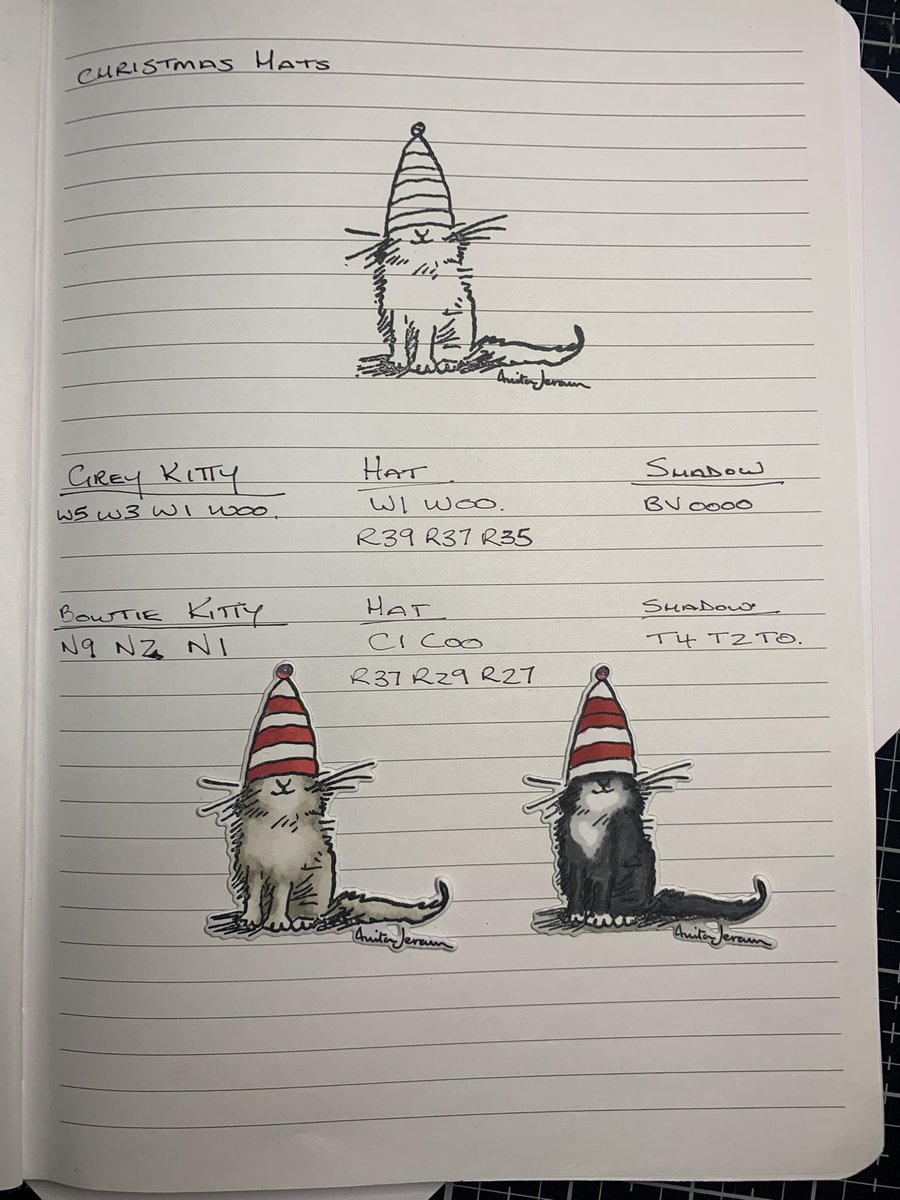 CHRISTMAS HATS
Anita Jeram
GREY KITTY HAT SHADOW
W5 W3 W1 W00. W1 W00. BV0000
R39 R37 R35
BOWTIE KITTY HAT SHADOW
N9 N2 N1 C1 C00 T4 T2 T0.
R37 R29 R27
Anita Jeram Anita Jeram